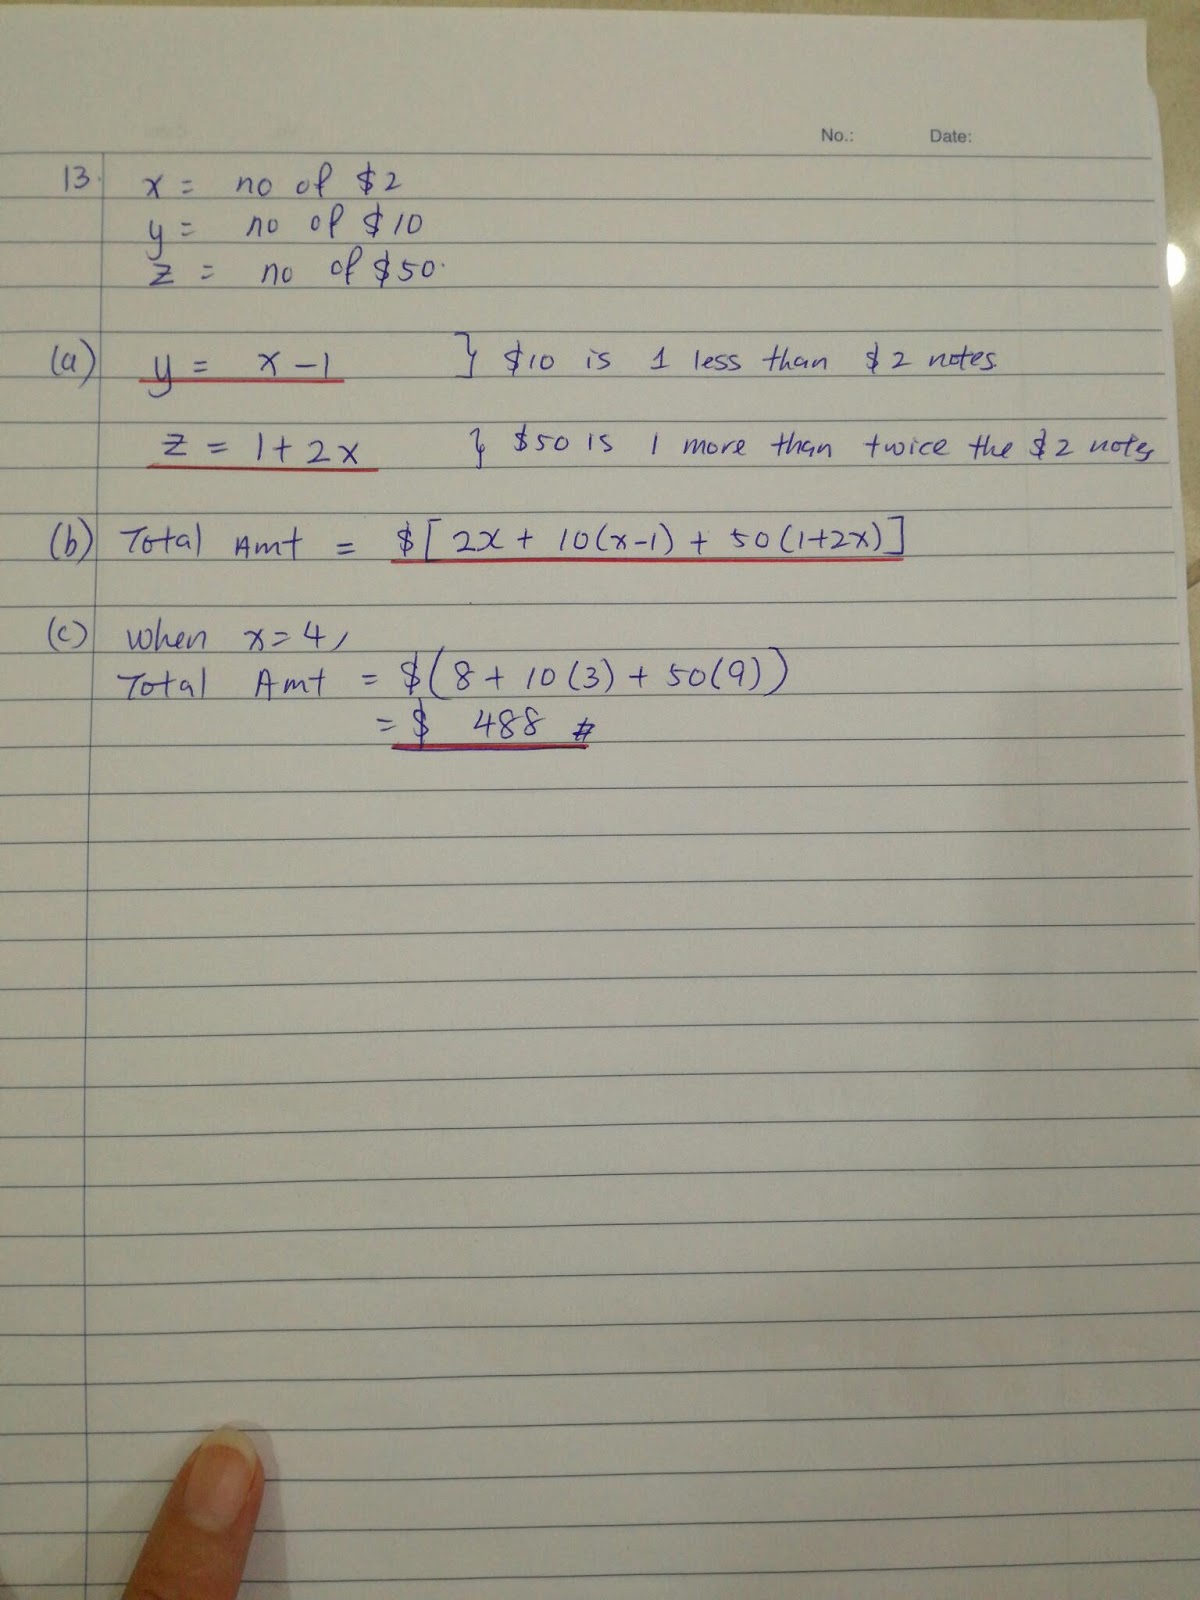 No.: Date:
13. x = no of $2
y = no of $10
z = no of $50.
(a) y = x - 1 } $10 is 1 less than $2 notes
z = 1 + 2x } $50 is 1 more than twice the $2 notes
(b) Total Amt = $[2x + 10(x-1) + 50(1+2x)]
(c) when x = 4,
Total Amt = $(8 + 10(3) + 50(9))
= $ 488 #